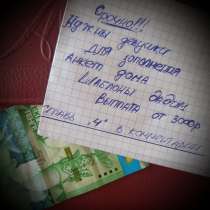 Срочно!!!
Нужны девушки
Для заполнения
Анкет дома
Шаблоны дадим
Выплата от 3000р
Ставь „Ч“ в комментарии